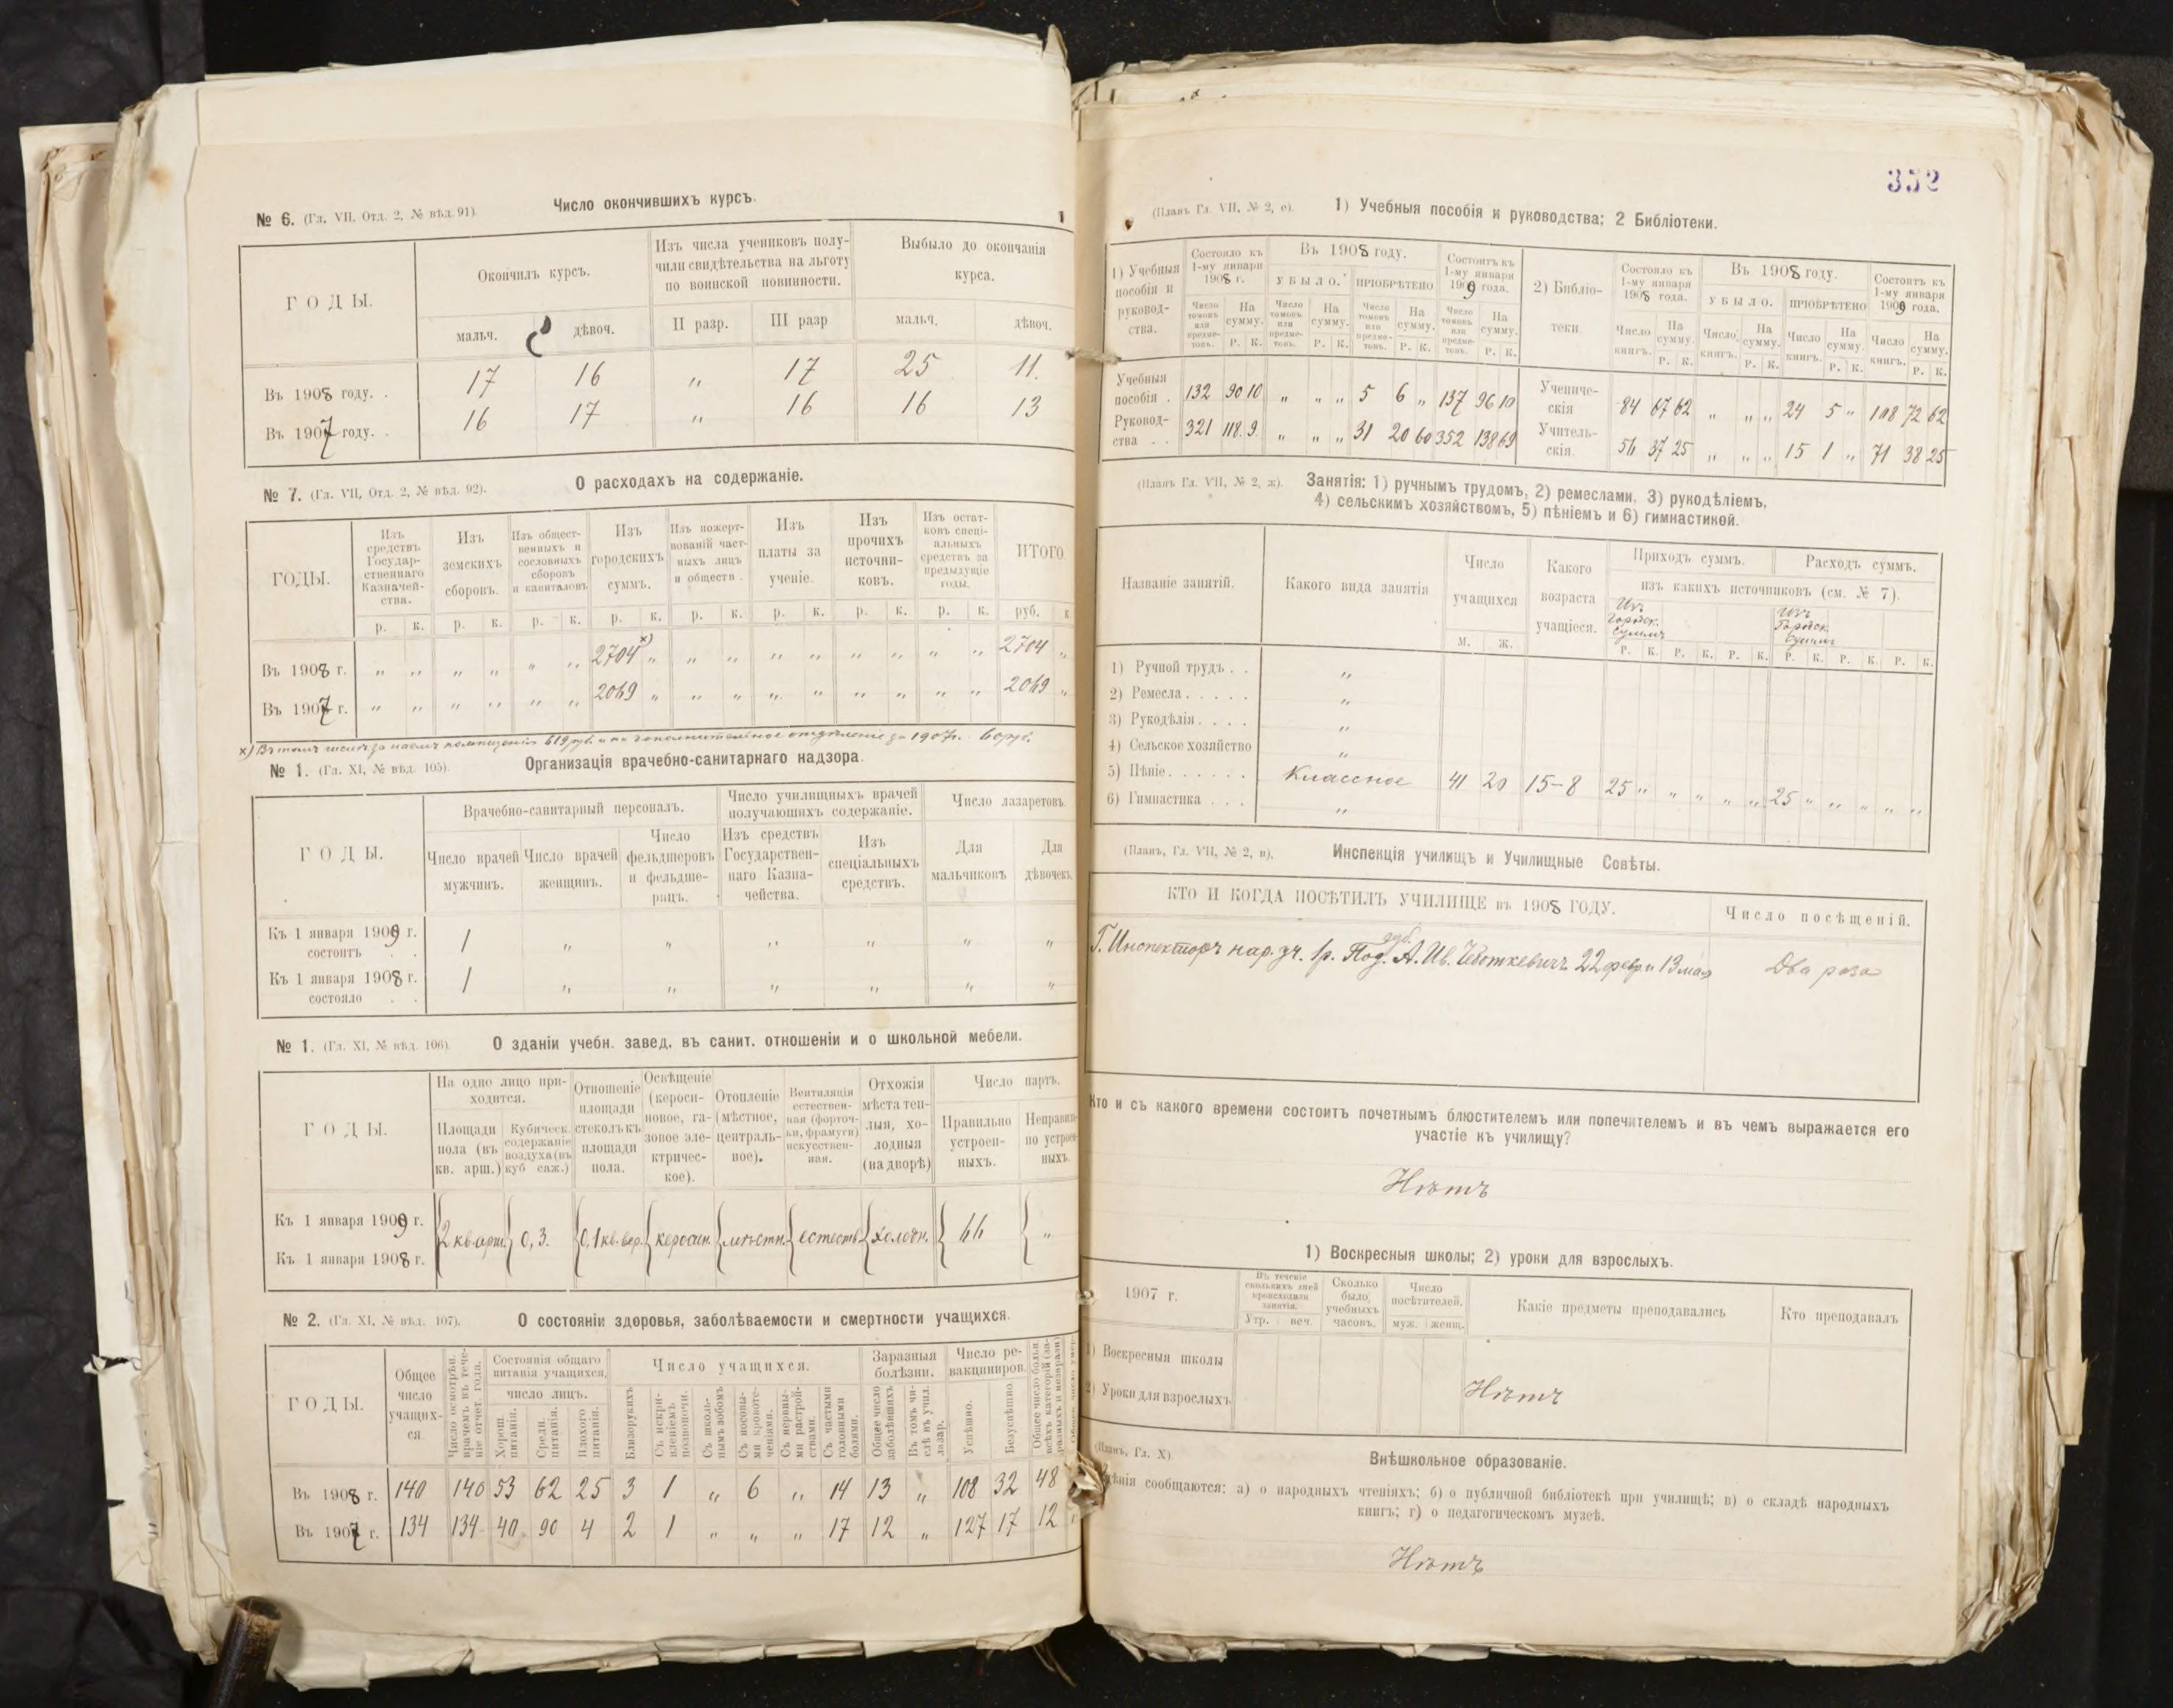 № 6. (Гл. VII, Отд. 2, № вѣд. 91). Число окончившихъ курсъ.
ГОДЫ. Окончилъ курсъ. Изъ числа учениковъ получили свидѣтельства на льготу по воинской повинности. Выбыло до окончанія курса.
мальч. дѣвоч. II разр. III разр мальч. дѣвоч.
Въ 1908 году. . 17 16 „ 17 25 11.
Въ 1907 году. . 16 17 „ 16 16 13
№ 7. (Гл. VII, Отд. 2, № вѣд. 92). О расходахъ на содержаніе.
ГОДЫ. Изъ средствъ Государственнаго Казначейства. Изъ земскихъ сборовъ. Изъ общественныхъ и сословныхъ сборовъ и капиталовъ Изъ городскихъ суммъ. Изъ пожертвованій частныхъ лицъ и обществ. Изъ платы за ученіе. Изъ прочихъ источниковъ. Изъ остатковъ спеціальныхъ средствъ за предыдущіе годы. ИТОГО
р. к. р. к. р. к. р. к. р. к. р. к. р. к. р. к. руб. к
Въ 1908 г. „ „ „ „ „ „ 2704 х) „ „ „ „ „ „ „ „ „ 2704 „
Въ 1907 г. „ „ „ „ „ „ 2069 „ „ „ „ „ „ „ „ „ 2069 „
х) Въ томъ числѣ за наемъ помѣщенія 619 руб. и на дополнительное отдѣленіе за 1907 г. 60 руб.
№ 1. (Гл. XI, № вѣд. 105). Организація врачебно-санитарнаго надзора.
ГОДЫ. Врачебно-санитарный персоналъ. Число училищныхъ врачей получающихъ содержаніе. Число лазаретовъ
Число врачей мужчинъ. Число врачей женщинъ. Число фельдшеровъ и фельдшерицъ. Изъ средствъ Государственнаго Казначейства. Изъ спеціальныхъ средствъ. Для мальчиковъ Для дѣвочекъ
Къ 1 января 1909 г. состоитъ . . 1 „ „ „ „ „ „
Къ 1 января 1908 г. состояло . . 1 „ „ „ „ „ „
№ 1. (Гл. XI, № вѣд. 106). О зданіи учебн. завед. въ санит. отношеніи и о школьной мебели.
ГОДЫ. На одно лицо приходится. Отношеніе площади стеколъ къ площади пола. Освѣщеніе (керосиновое, газовое электрическое). Отопленіе (мѣстное, центральное). Вентиляція естественная (форточки, фрамуги) искусственная. Отхожія мѣста теплыя, холодныя (на дворѣ) Число партъ.
Площади пола (въ кв. арш.) Кубическ. содержаніе воздуха (въ куб саж.) Правильно устроенныхъ. Неправильно устроенныхъ.
Къ 1 января 1909 г.
Къ 1 января 1908 г. 2 кв. арш. 0,3. 0,1 кв. вер. керосин. мѣстн. естеств. холодн. 66 „
№ 2. (Гл. XI, № вѣд. 107). О состояніи здоровья, заболѣваемости и смертности учащихся.
ГОДЫ. Общее число учащихся. Число осмотрѣн. врачемъ въ теченіе отчет. года. Состоянія общаго питанія учащихся, число лицъ. Число учащихся. Заразныя болѣзни. Число ревакциниров.
Хорош. питанія. Средн. питанія. Плохого питанія. Близорукихъ Съ искривленіемъ позвоночн. Съ школьнымъ зобомъ Съ носовыми кровотеченіями. Съ нервными разстройствами. Съ частыми головными болями. Общее число заболѣвшихъ Въ томъ числѣ въ учил. лазар. Успѣшно. Безуспѣшно.
Въ 1908 г. 140 140 53 62 25 3 1 „ 6 „ 14 13 „ 108 32 48
Въ 1907 г. 134 134 40 90 4 2 1 „ „ „ 17 12 „ 127 17 12
352
(Планъ Гл. VII, № 2, е). 1) Учебныя пособія и руководства; 2 Библіотеки.
1) Учебныя пособія и руководства. Состояло къ 1-му января 1908 г. Въ 1908 году. Состоитъ къ 1-му января 1909 года. 2) Библіотеки Состояло къ 1-му января 1908 года. Въ 1908 году. Состоитъ къ 1-му января 1909 года.
УБЫЛО. ПРІОБРѢТЕНО УБЫЛО. ПРІОБРѢТЕНО
Число томовъ или предметовъ. На сумму. Р. К. Число томовъ или предметовъ. На сумму. Р. К. Число томовъ или предметовъ. На сумму. Р. К. Число томовъ или предметовъ. На сумму. Р. К. Число книгъ. На сумму. Р. К. Число книгъ. На сумму. Р. К. Число книгъ. На сумму. Р. К. Число книгъ. На сумму. Р. К.
Учебныя пособія . 132 90 10 „ „ „ 5 6 „ 137 96 10 Ученическія 84 67 62 „ „ „ 24 5 „ 108 72 62
Руководства . . 321 118. 9. „ „ „ 31 20 60 352 138 69 Учительскія. 56 37 25 „ „ „ 15 1 „ 71 38 25
(Планъ Гл. VII, № 2, ж). Занятія: 1) ручнымъ трудомъ, 2) ремеслами, 3) рукодѣліемъ,
4) сельскимъ хозяйствомъ, 5) пѣніемъ и 6) гимнастикой.
Названіе занятій. Какого вида занятія Число учащихся Какого возраста учащіеся. Приходъ суммъ. Расходъ суммъ.
изъ какихъ источниковъ (см. № 7).
Изъ Городск. суммъ Изъ Городск. суммъ
м. ж. Р. К. Р. К. Р. К. Р. К. Р. К. Р. К.
1) Ручной трудъ . . „
2) Ремесла . . . . . „
3) Рукодѣлія . . . . „
4) Сельское хозяйство „
5) Пѣніе . . . . . . Классное 41 20 15-8 25 „ „ „ „ „ 25 „ „ „ „ „
6) Гимнастика . . . „
(Планъ, Гл. VII, № 2, и). Инспекція училищъ и Училищные Совѣты.
КТО И КОГДА ПОСѢТИЛЪ УЧИЛИЩЕ въ 1908 ГОДУ. Число посѣщеній.
Г. Инспекторъ нар. уч. 1р. Под. губ. А. Ив. 22 февр и 13 мая Два раза
Кто и съ какого времени состоитъ почетнымъ блюстителемъ или попечителемъ и въ чемъ выражается его
участіе къ училищу?
Нѣтъ
1) Воскресныя школы; 2) уроки для взрослыхъ.
1907 г. Въ теченіе сколькихъ дней происходили занятія. Утр. веч. Сколько было учебныхъ часовъ. Число посѣтителей. муж. женщ. Какіе предметы преподавались Кто преподавалъ
1) Воскресныя школы
2) Уроки для взрослыхъ Нѣтъ
(Планъ, Гл. X). Внѣшкольное образованіе.
сообщаются: а) о народныхъ чтеніяхъ; б) о публичной библіотекѣ при училищѣ; в) о складѣ народныхъ
книгъ; г) о педагогическомъ музеѣ.
Нѣтъ